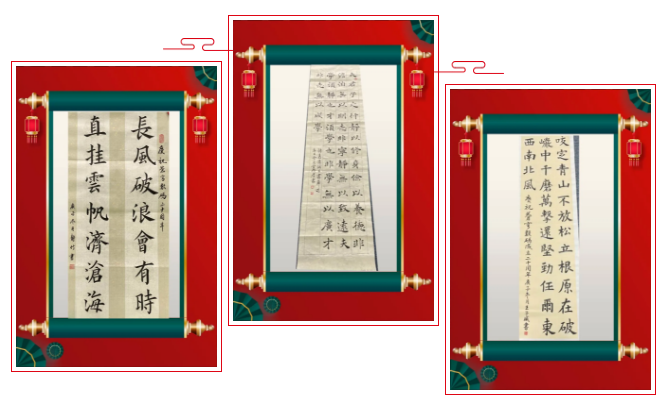 長風破浪會有時
直挂雲帆濟滄海
夫君子之行靜以修身儉以養德非
澹泊無以明志非寧靜無以致遠夫
學須靜也才須學也非學無以廣才
非志無以成學
咬定青山不放松立根原在破
巖中千磨萬擊還堅勁任爾東
西南北風